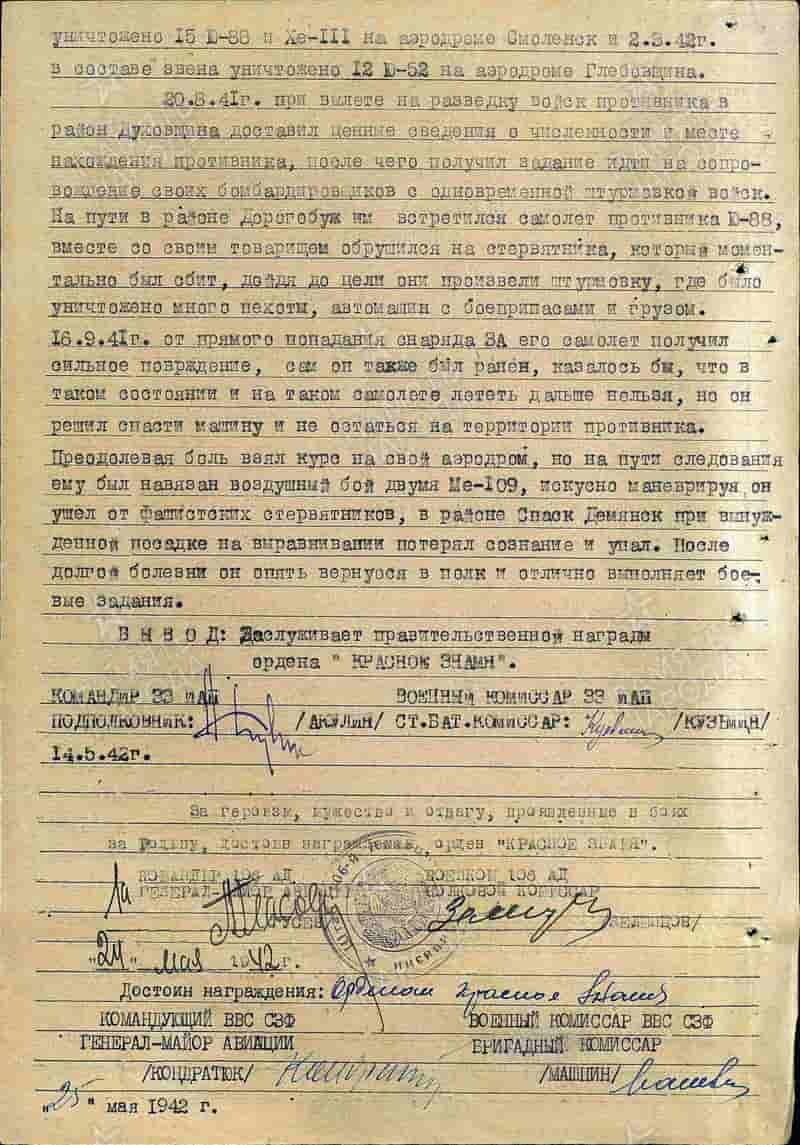 уничтожено 15 Ю-88 и Хе-III на аэродроме Смоленск и 2.3.42г.
в составе звена уничтожено 12 Ю-52 на аэродроме Глебовщина.
20.8.41г. при вылете на разведку войск противника в
район Духовщина доставил ценные сведения о численности и месте
нахождения противника, после чего получил задание идти на сопро-
вождение своих бомбардировщиков с одновременной штурмовкой войск.
На пути в районе Дорогобуж им встретился самолет противника Ю-88,
вместе со своим товарищем обрушился на стервятника, который момен-
тально был сбит, дойдя до цели они произвели штурмовку, где было
уничтожено много пехоты, автомашин с боеприпасами и грузом.
16.9.41г. от прямого попадания снаряда ЗА его самолет получил
сильное поврждение, сам он также был ранен, казалось бы, что в
таком состоянии и на таком самолете лететь дальше нельзя, но он
решил спасти машину и не остаться на территории противника.
Преодолевая боль взял курс на свой аэродром, но на пути следования
ему был навязан воздушный бой двумя Ме-109, искусно маневрируя он
ушел от фашистских стервятников, в районе Спаск Демянск при вынуж-
денной посадке на выравнивании потерял сознание и упал. После
долгой болезни он опять вернуося в полк и отлично выполняет бое-
вые задания.
ВЫВОД: Заслуживает правительственной награды
ордена " КРАСНОЕ ЗНАМЯ".
КОМАНДИР 33 ИАП ВОЕННЫЙ КОМИССАР 33 ИАП
ПОДПОЛКОВНИК: /АКУЛИН/ СТ.БАТ.КОМИССАР: /КУЗЬМИН/
14.5.42г.
За героизм, мужество и отвагу, проявленные в боях
за Родину, достоин награждения, орден "КРАСНОЕ ЗНАМЯ".
КОМАНДИР 106 АД ВОЕНКОМ 106 АД
ГЕНЕРАЛ-МАЙОР АВИАЦИИ ПОЛКОВОЙ КОМИССАР
"24" мая 1942 г.
Достоин награждения: Орденом Красное Знамя
КОМАНДУЮЩИЙ ВВС СЗФ ВОЕННЫЙ КОМИССАР ВВС СЗФ
ГЕНЕРАЛ-МАЙОР АВИАЦИИ БРИГАДНЫЙ КОМИССАР
/КОНДРАТЮК/ /МАШНИН/
"25" мая 1942 г.